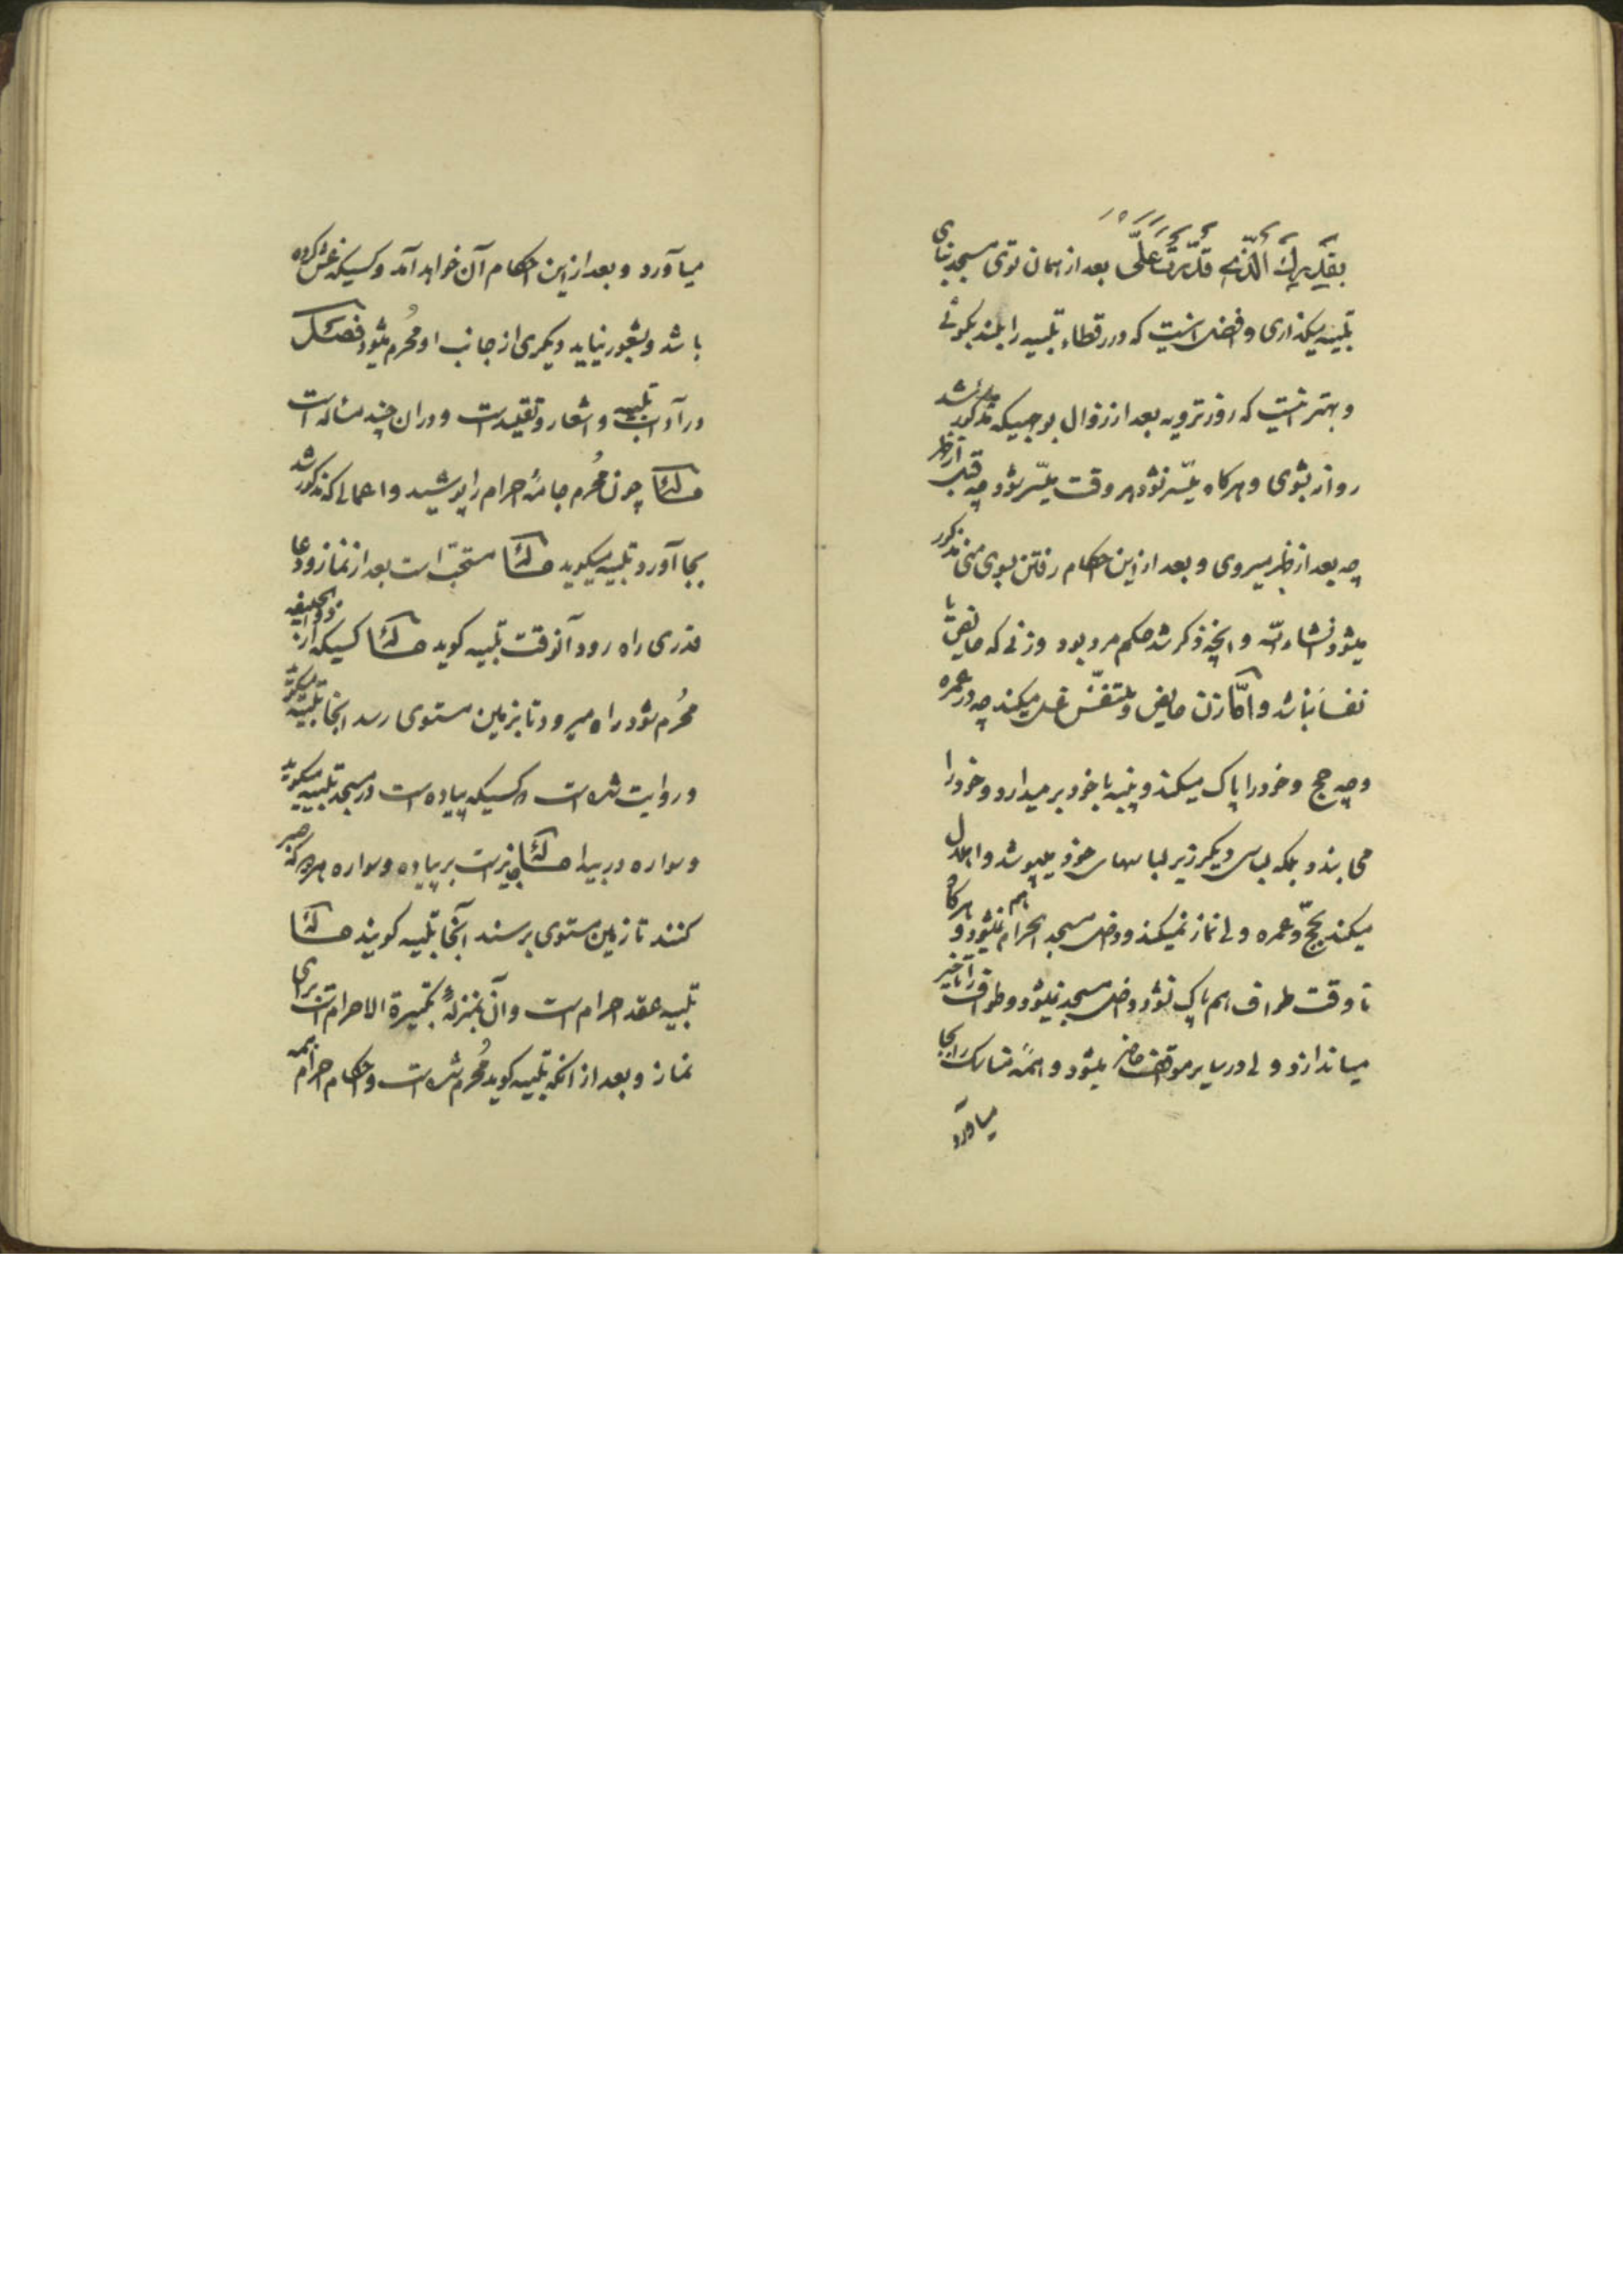 بِقَدَرِكَ الَّذِي قَدَّرْتَ عَلَيَّ بعد از همان توی مسجد بنای
تلبیه میگذاری و افضل انیست که در رقطاء تلبیه را بلند بگوئی
و بهتر انیست که روز ترویه بعد از زوال بوجهیکه مذکور شد
روانه بشوی و هرکاه میسّر نشود هر وقت میسّر شود چه قبل از ظهر
چه بعد از ظهر میروی و بعد از این احکام رفتن بسوی منی مذکور
میشود انشاء الله و انچه ذکر شد حکم مرد بود و زنی که حایض یا
نفسا نباشد و امّا زن حایض و متنفّس غسل میکند چه در عمره
و چه حج و خود را پاک میکند و پنبه با خود بر میدارد و خود را
می بندد بلکه لباس دیکر زیر لباسهای خود میپوشد و اهلال
میکند بحجّ و عمره ولی نماز نمیکند و داخل مسجد الحرام هم نمیشود و هرکاه
تا وقت طواف هم پاک نشود داخل مسجد نمیشود و طواف را تأخیر
میاندازد ولی در سایر مواقف حاضر میشود و همهٔ مناسک را بجا
میاورد
میاورد و بعد از این احکام آن خواهد آمد و کسیکه غش کرده
باشد و بشعور نیاید دیکری از جانب او مُحرم میشود فصل
در آداب تلبیه و اشعار و تقلید است و در ان چند مسأله است
مسألة چون مُحرم جامهٔ احرام را پوشید و اعمالی که مذکور شد
بجا آورد تلبیه میکوید مسألة مستحبّ است بعد از نماز و دعا
قدری راه رود آنوقت تلبیه کوید مسألة کسیکه از ذو الحلیفه
مُحرم شود راه میرود تا بزمین مستوی رسد انجا تلبیه میکوید
و روایت شده است که کسیکه پیاده است در مسجد تلبیه میکوید
و سواره در بیدا مسألة جایز است بر پیاده و سواره هر دو که صبر
کنند تا زمین مستوی برسند آنجا تلبیه کویند مسألة
تلبیه عقد احرام است و آن بمنزلهٔ تکبیرة الاحرام است برای
نماز و بعد از انکه تلبیه کوید مُحرم شده است و احکام احرام همه